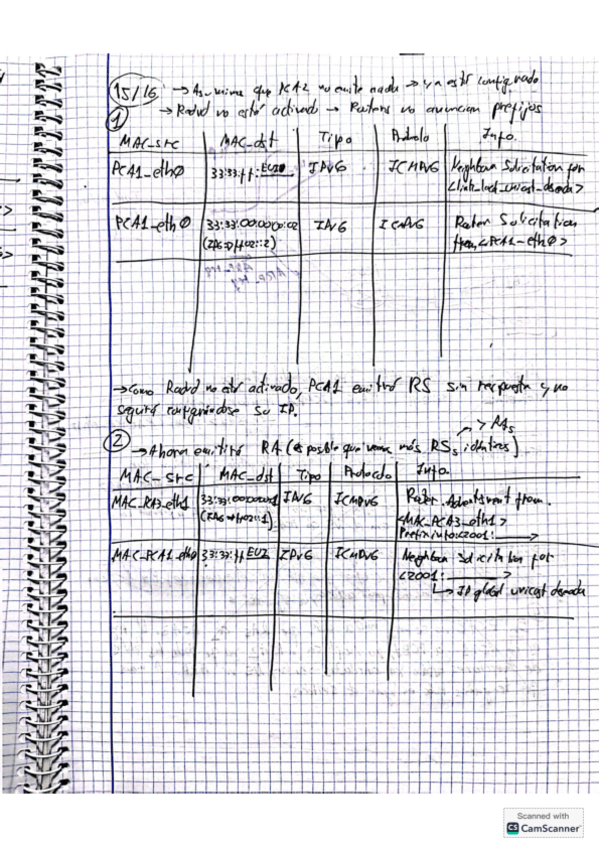 15/16 → Asumime que PCA2 no emite nada → ya está configurado
→ Radvd no está activado → Routers no anuncian prefijos
1
MAC_src MAC_dst Tipo Protocolo Info.
PCA1_eth0 33:33:ff:EUI IPv6 ICMPv6 Neighbour Solicitation for
<link_local_unicast_deseada>
PCA1_eth0 33:33:00:00:00:02 IPv6 ICMPv6 Router Solicitation
(IP6=>ff02::2) from <PCA1-eth0>
→ Como Radvd no está activado, PCA1 emitirá RS sin respuesta y no
seguirá configurándose su IP.
2 → Ahora emitirá RA (es posible que veamos más RSs idénticos)
→ RAs
MAC_src MAC_dst Tipo Protocolo Info.
MAC_RA3-eth1 33:33:00:00:00:01 IPv6 ICMPv6 Router Advertisement from.
(IP6=>ff02::1) <MAC_RA3-eth1>
Prefix info:<2001:____>
MAC_PCA1_eth0 33:33:ff EUI IPv6 ICMPv6 Neighbour Solicitation for
<2001:____>
→ IP global unicast deseada
Scanned with
CS CamScanner